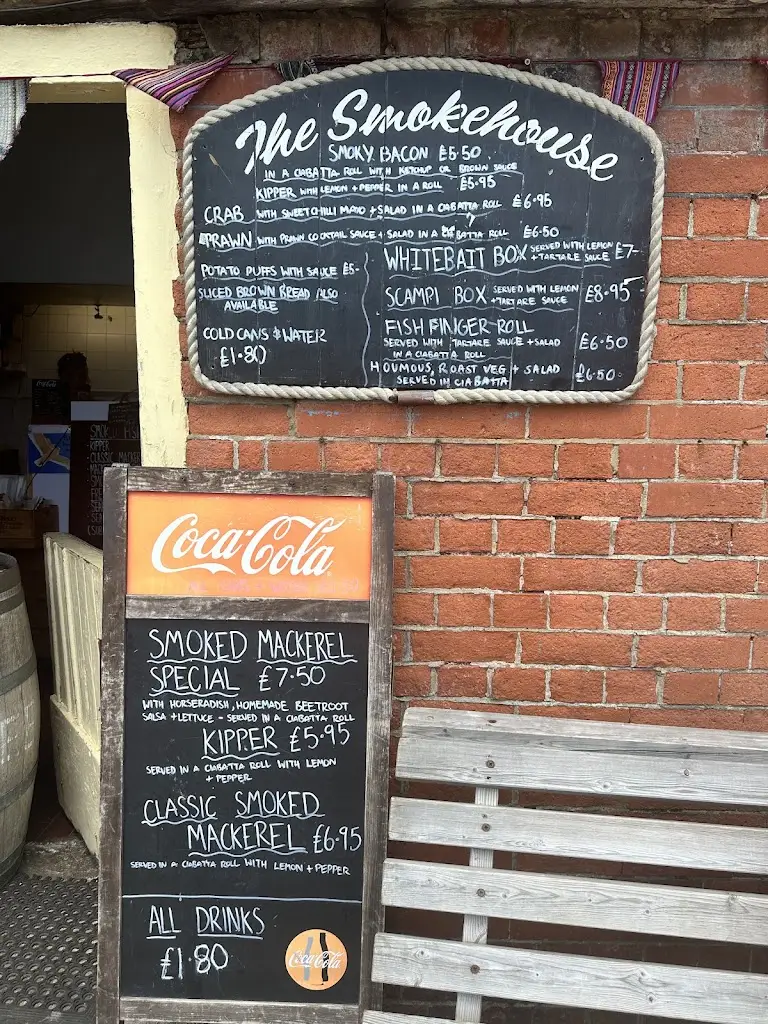 The Smokehouse
SMOKY BACON £5.50
IN A CIABATTA ROLL WITH KETCHUP OR BROWN SAUCE
KIPPER WITH LEMON + PEPPER IN A ROLL £5.95
CRAB WITH SWEET CHILLI MAYO + SALAD IN A CIABATTA ROLL £6.95
PRAWN WITH PRAWN COCKTAIL SAUCE + SALAD IN A CIABATTA ROLL £6.50
POTATO PUFFS WITH SAUCE £5-
SLICED BROWN BREAD ALSO
AVAILABLE
COLD CANS & WATER
£1.80
WHITEBAIT BOX SERVED WITH LEMON
+ TARTARE SAUCE £7-
SCAMPI BOX SERVED WITH LEMON
+ TARTARE SAUCE £8.95
FISH FINGER ROLL
SERVED WITH TARTARE SAUCE + SALAD
IN A CIABATTA ROLL £6.50
HOUMOUS, ROAST VEG + SALAD
SERVED IN CIABATTA £6.50
Coca-Cola
SMOKED MACKEREL
SPECIAL £7.50
WITH HORSERADISH, HOMEMADE BEETROOT
SALSA + LETTUCE - SERVED IN A CIABATTA ROLL
KIPPER £5.95
SERVED IN A CIABATTA ROLL WITH LEMON
+ PEPPER
CLASSIC SMOKED
MACKEREL £6.95
SERVED IN A CIABATTA ROLL WITH LEMON + PEPPER
ALL DRINKS
£1.80
Coca-Cola
SMOKED FISH
KIPPER
CLASSIC MACKEREL